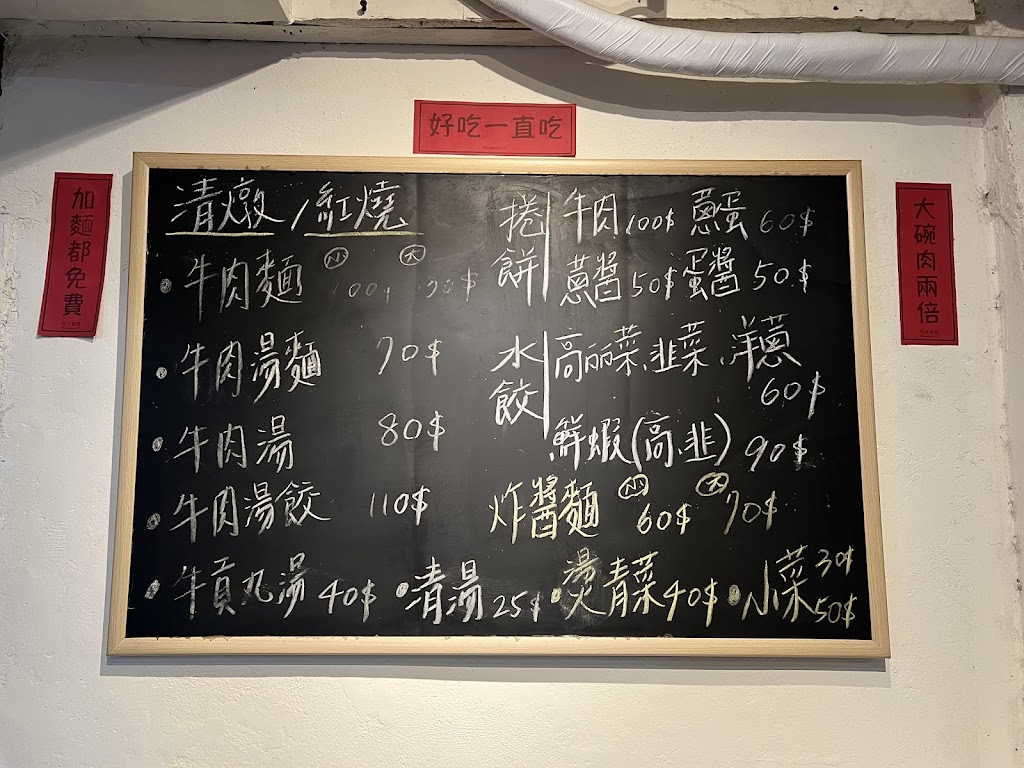 好吃一直吃
加麵都免費
大碗肉兩倍
清燉/紅燒
小 大
•牛肉麵 100$
•牛肉湯麵 70$
•牛肉湯 80$
•牛肉湯餃 110$
•牛貢丸湯 40$ •清湯 25$ •燙青菜 40$ •小菜 30$ 50$
捲餅 牛肉100$ 蔥蛋 60$
蔥醬50$ 蛋醬 50$
水餃 高麗菜、韭菜、洋蔥
60$
鮮蝦(高.韭) 90$
炸醬麵 小 60$ 大 70$